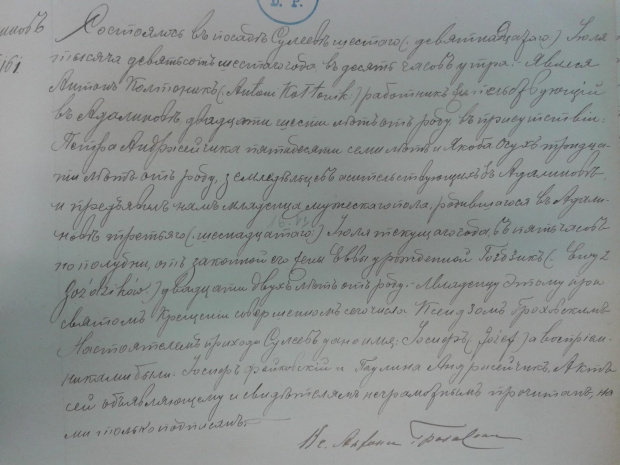 D. P.
Состоялось въ посадѣ Сулеевъ шестого (девятнадцатого) Іюля
тысяча девятьсотъ шестого года въ десять часовъ утра. Явился
Антонъ Колтоникъ (Antoni Kołtonik) работникъ
въ Адалиновѣ двадцати шести лѣтъ отъ роду въ присутствіи:
Петра Андрейчика пятидесяти семи лѣтъ и Якова Осухъ тридца-
ти лѣтъ отъ роду, земледѣльцевъ жительствующихъ въ Адалиновѣ,
и предъявилъ намъ младенца мужескаго пола, родившагося въ Адали-
новѣ третьяго (шестнадцатого) Іюля текущаго года въ пять часовъ
по полудни, отъ законной его жены Еввы урожденной
двадцати двухъ лѣтъ отъ роду. Младенцу этому при
святомъ Крещеніи совершенномъ сего числа Ксендзомъ Броховскимъ
Настоятелемъ прихода Сулеевъ дано имя: Іосифъ (Józef) а воспріем-
никами были: Іосифъ и Паулина Андрейчикъ. Актъ
сей объявляющему и свидѣтелямъ неграмотнымъ прочитанъ, на-
ми только подписанъ.
Кс. Антони